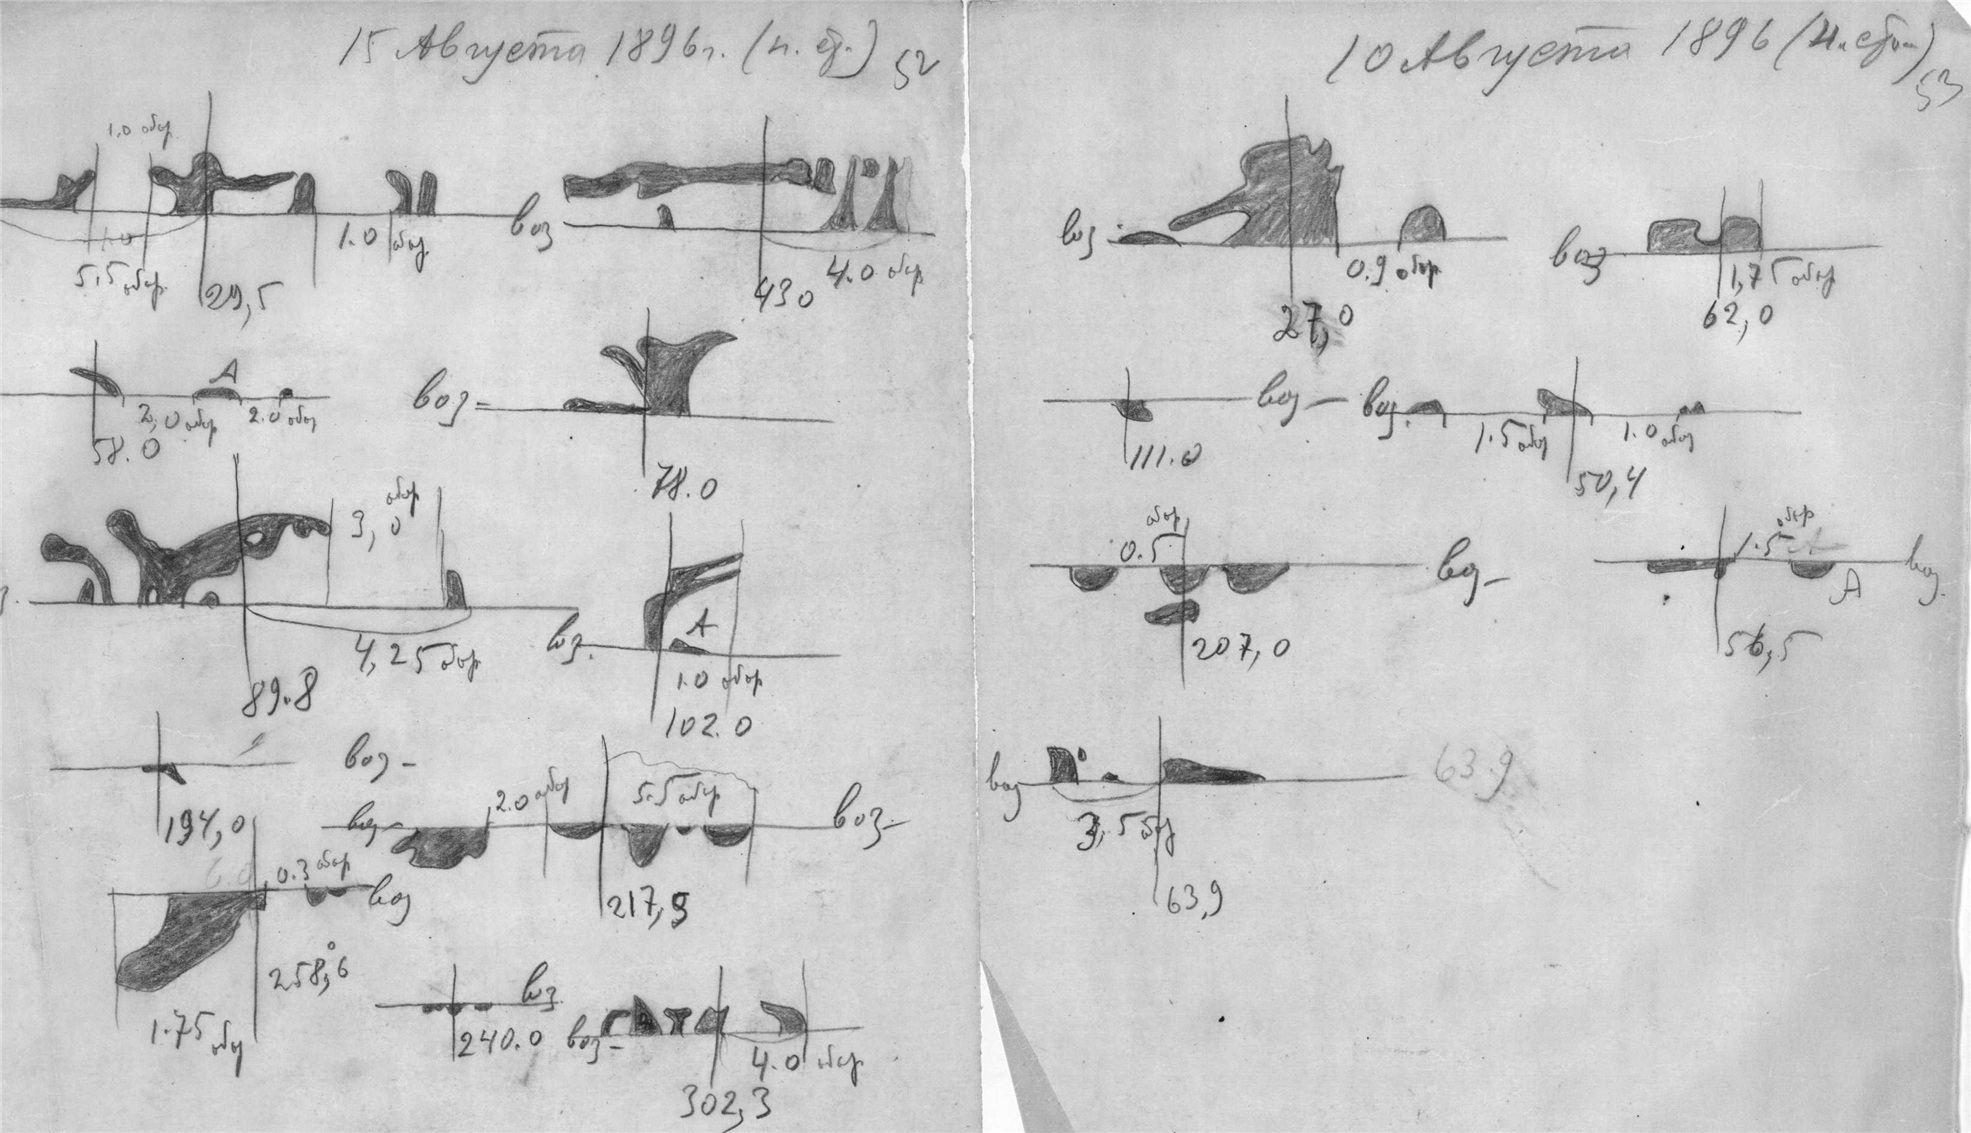 15 Августа 1896г. (н. ст.) 52
1.0 обор.
1.0
5,5 обор.
29,5
1.0 обор.
воз
430
4.0 обор
А
2,0 обор
2.0 обор
58.0
воз-
78.0
3,0 обор
4,25 обор
89.8
воз.
А
1.0 обор
102.0
воз-
194,0
воз-
2.0 обор
5.5 обор
воз-
217,5
0.3 обор
воз
258,6°
1.75 обор
воз
240.0
воз-
4.0 обор
302,3
10 Августа 1896 (н. ст.) 53
воз
0.9 обор
27,0
воз
1,75 обор
62,0
воз-
111.0
воз.
1.5 обор
1.0 обор
50,4
обор
0.5
воз-
207,0
обор
1.5
А
воз.
56,5
воз
3,5 обор
63,9
63.9